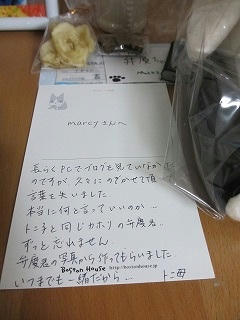 marcyさんへ
長らくPCでブログを見ていなかった
のですが 久々にのぞかせて頂き
言葉を失いました
本当に何と言っていいのか…
トニ子と同じカホリの弁慶君。
ずっと忘れません
弁慶君の写真から作ってもらいました
Boston House http://bostonhouse.jp
いつまでも一緒だから…
トニ母